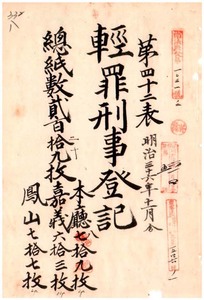 第四十二表
明治三十六年十一月分
輕罪刑事登記
總紙数貳百拾九枚
本廳七拾九枚
嘉義六拾三枚
鳳山七拾七枚